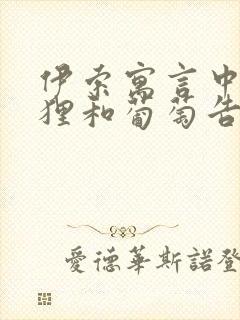 伊索寓言中
狸和葡萄告
愛德華斯諾登